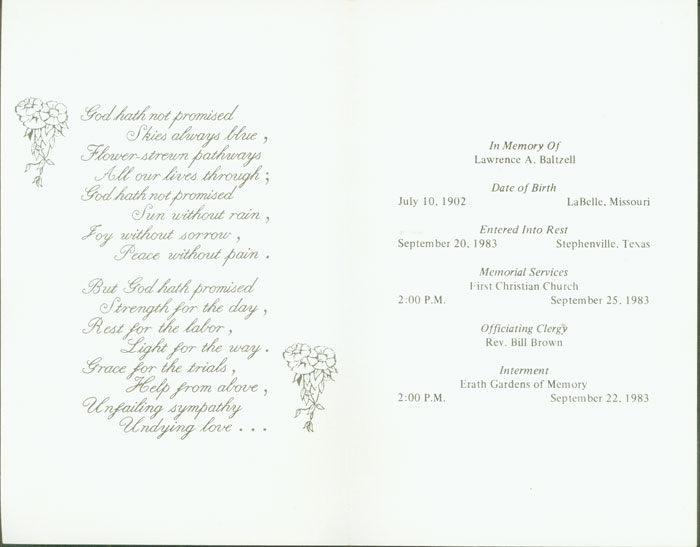 God hath not promised
Skies always blue,
Flower-strewn pathways
All our lives through;
God hath not promised
Sun without rain,
Joy without sorrow,
Peace without pain.
But God hath promised
Strength for the day,
Rest for the labor,
Light for the way.
Grace for the trials,
Help from above,
Unfailing sympathy
Undying love...
In Memory Of
Lawrence A. Baltzell
Date of Birth
July 10, 1902 LaBelle, Missouri
Entered Into Rest
September 20, 1983 Stephenville, Texas
Memorial Services
First Christian Church
2:00 P.M. September 25, 1983
Officiating Clergy
Rev. Bill Brown
Interment
Erath Gardens of Memory
2:00 P.M. September 22, 1983